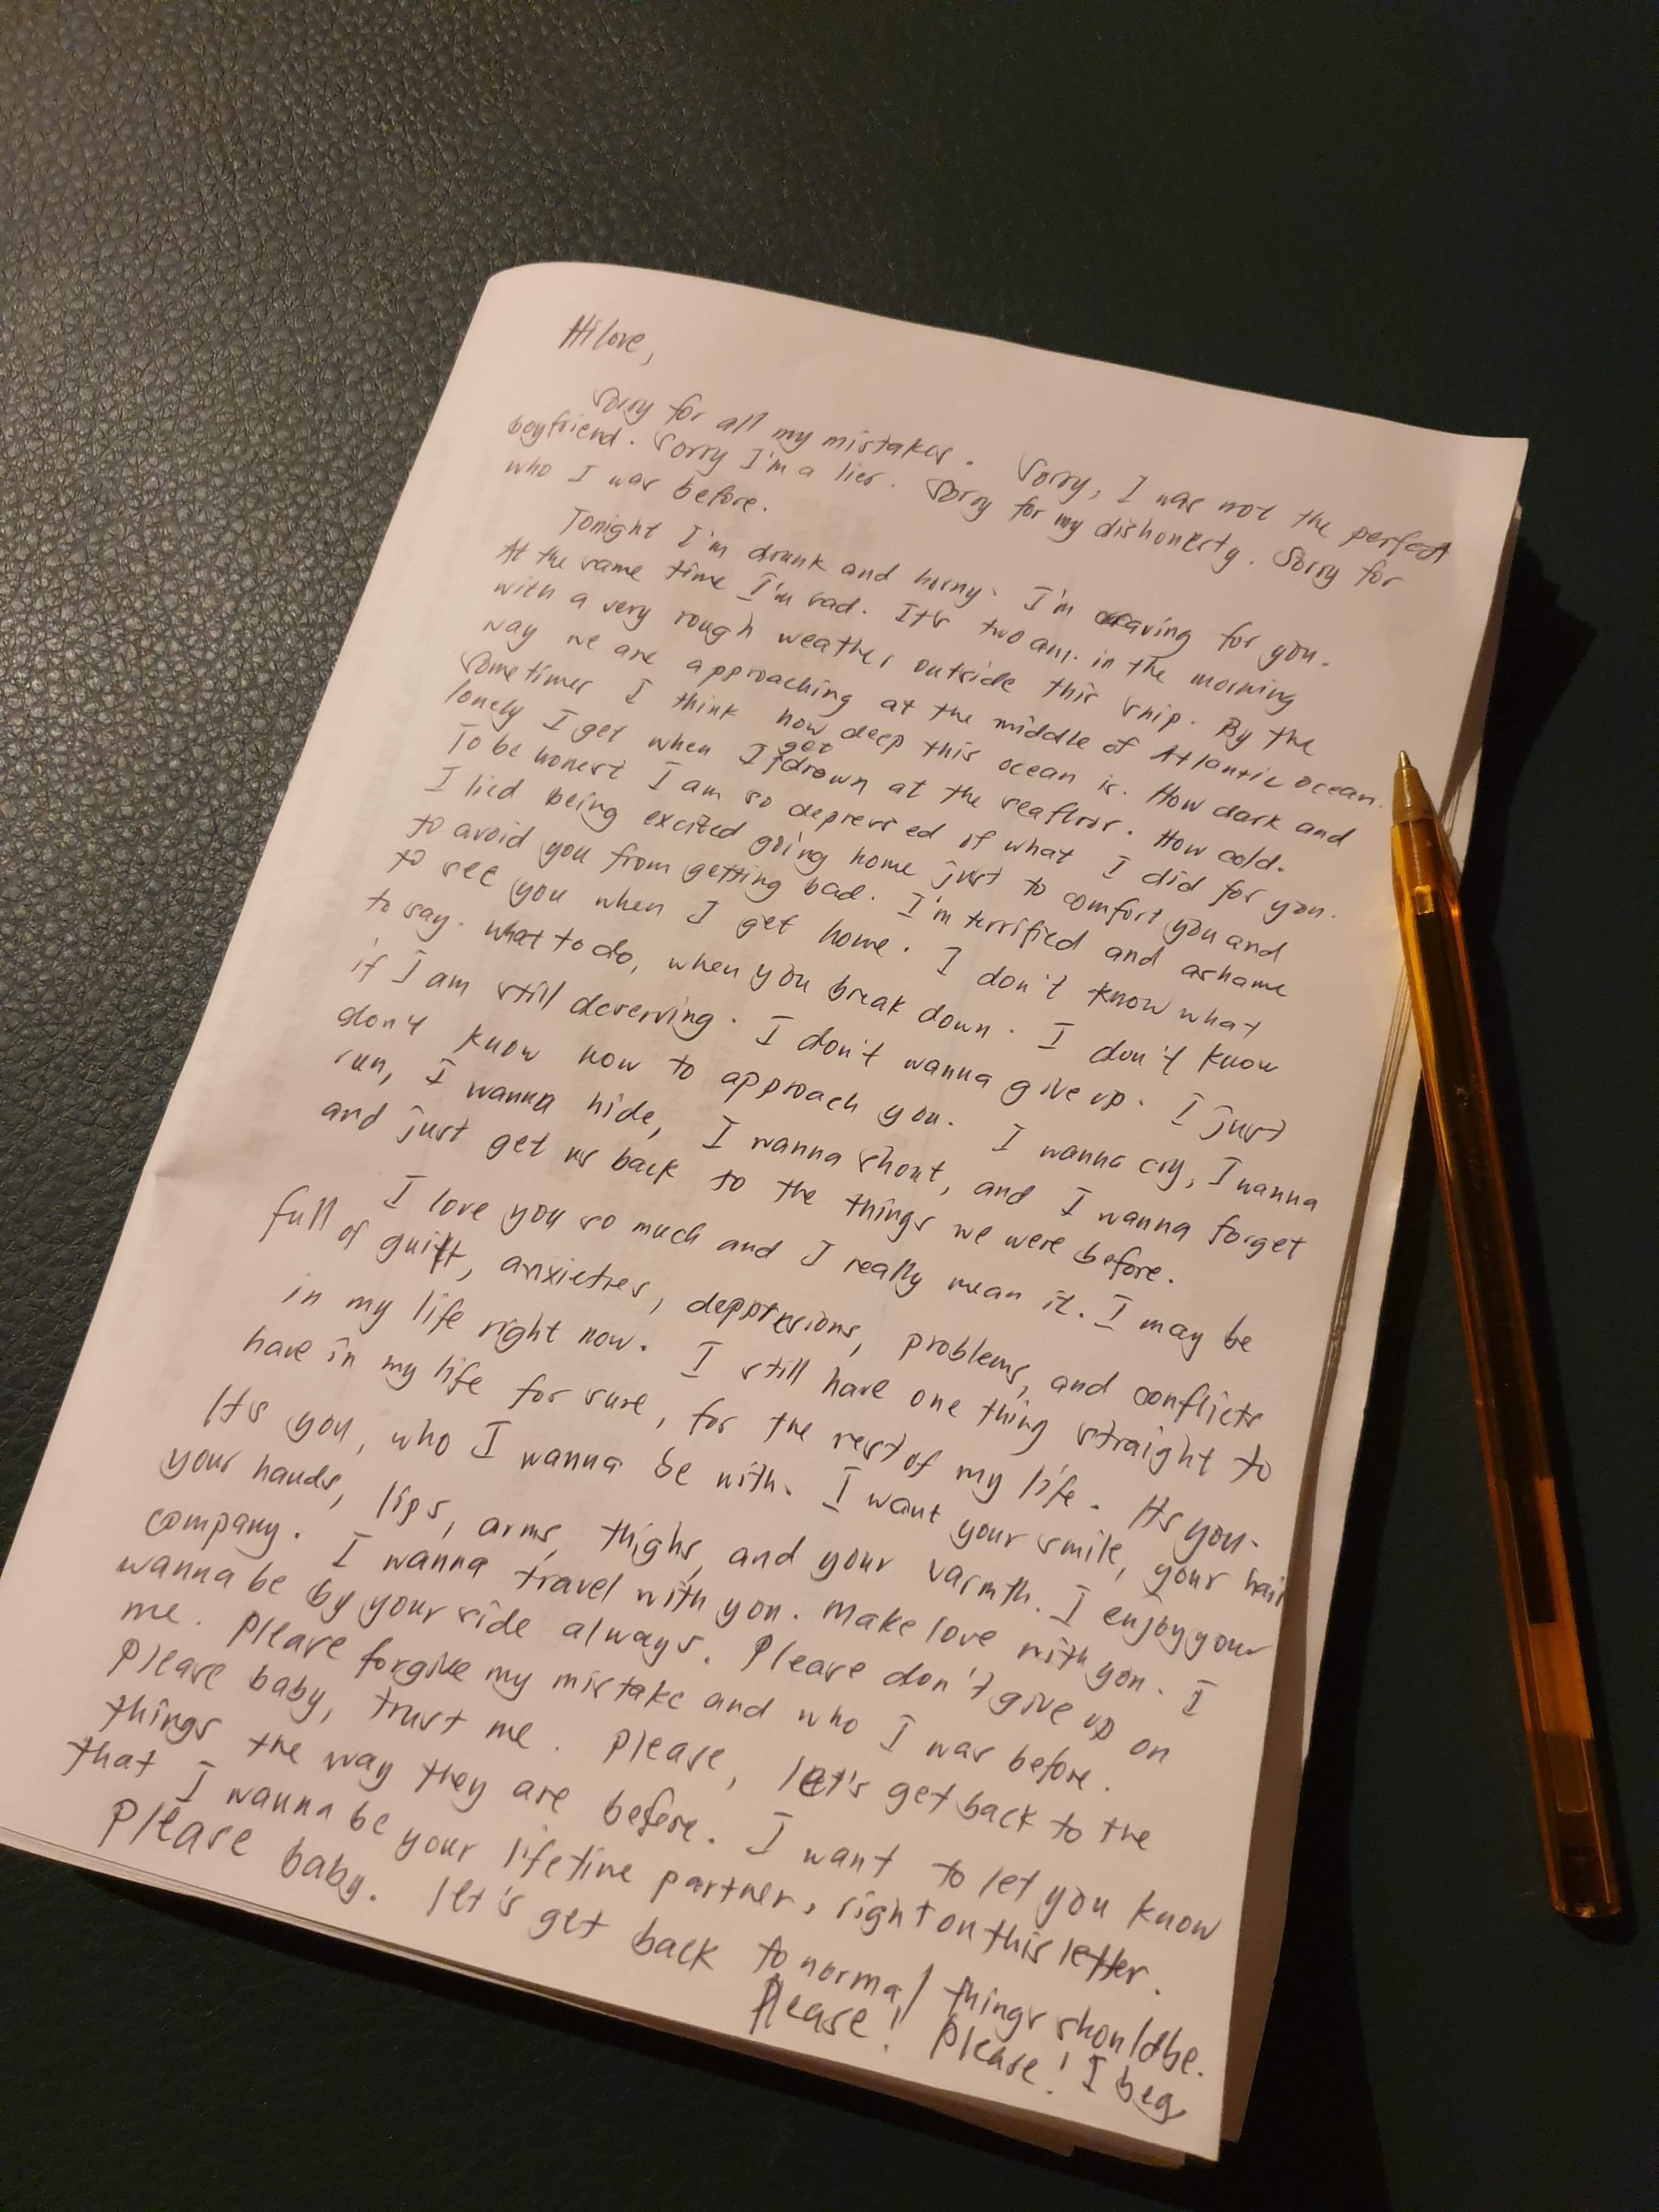 Hi love,
Sorry for all my mistakes. Sorry, I was not the perfect
boyfriend. Sorry I'm a lier. Sorry for my dishonesty. Sorry for
who I was before.
Tonight I'm drunk and horny. I'm craving for you.
At the same time I'm sad. It's two am. in the morning
with a very rough weather outside this ship. By the
way we are approaching at the middle of Atlantic ocean.
Sometimes I think how deep this ocean is. How dark and
lonely I get when I got drown at the seafloor. How cold.
To be honest I am so depressed of what I did for you.
I lied being excited going home just to comfort you and
to avoid you from getting bad. I'm terrified and ashame
to see you when I get home. I don't know what
to say. what to do, when you break down. I don't know
if I am still deserving. I don't wanna give up. I just
don't know how to approach you. I wanna cry, I wanna
run, I wanna hide, I wanna shout, and I wanna forget
and just get us back to the things we were before.
I love you so much and I really mean it. I may be
full of guilt, anxieties, depptesions, problems, and conflicts
in my life right now. I still have one thing straight to
have in my life for sure, for the rest of my life. Its you.
Its you, who I wanna be with. I want your smile, your hair
your hands, lips, arms, thighs, and your warmth. I enjoy your
company. I wanna travel with you. Make love with you. I
wanna be by your side always. Please don't give up on
me. Please forgive my mistake and who I was before.
Please baby, trust me. Please, let's get back to the
things the way they are before. I want to let you know
that I wanna be your lifetime partner, right on this letter.
Please baby. let's get back to normal things should be.
Please! Please! I beg